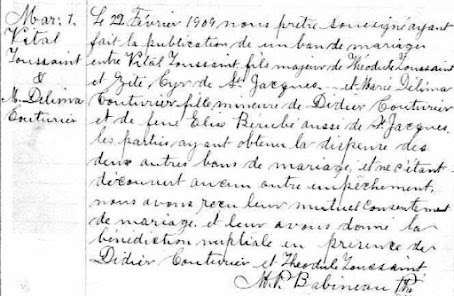 Mar: 1.
Vital
Toussaint
&
M. Délima
Couturier
Le 22 Février 1909 nous prêtre soussigné ayant
fait la publication de un ban de mariage
entre Vital Toussaint fils majeur de Théodule Toussaint
et Zité Cyr de St Jacques et Marie Délima
Couturier fille mineure de Didier Couturier
et de feue Elise Bérubé aussi de St Jacques,
les parties ayant obtenu la dispense des
deux autres bans de mariage, et ne s'étant
découvert aucun autre empêchement,
nous avons reçu leur mutuel consentement
de mariage, et leur avons donné la
bénédiction nuptiale en présence de
Didier Couturier et Théodule Toussaint
M. P. Babineau Ptre